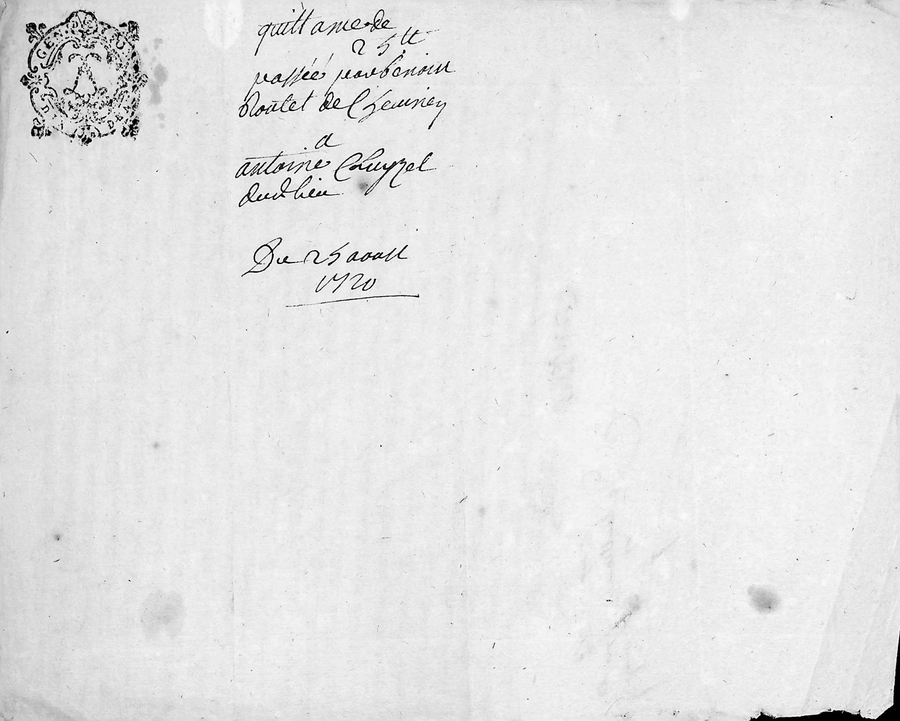 GEN
quittance de
25 lt
passée par benoit
Routet de Cheviney
a
antoine Chuzel
dud lieu
Du 25 aoust
1720